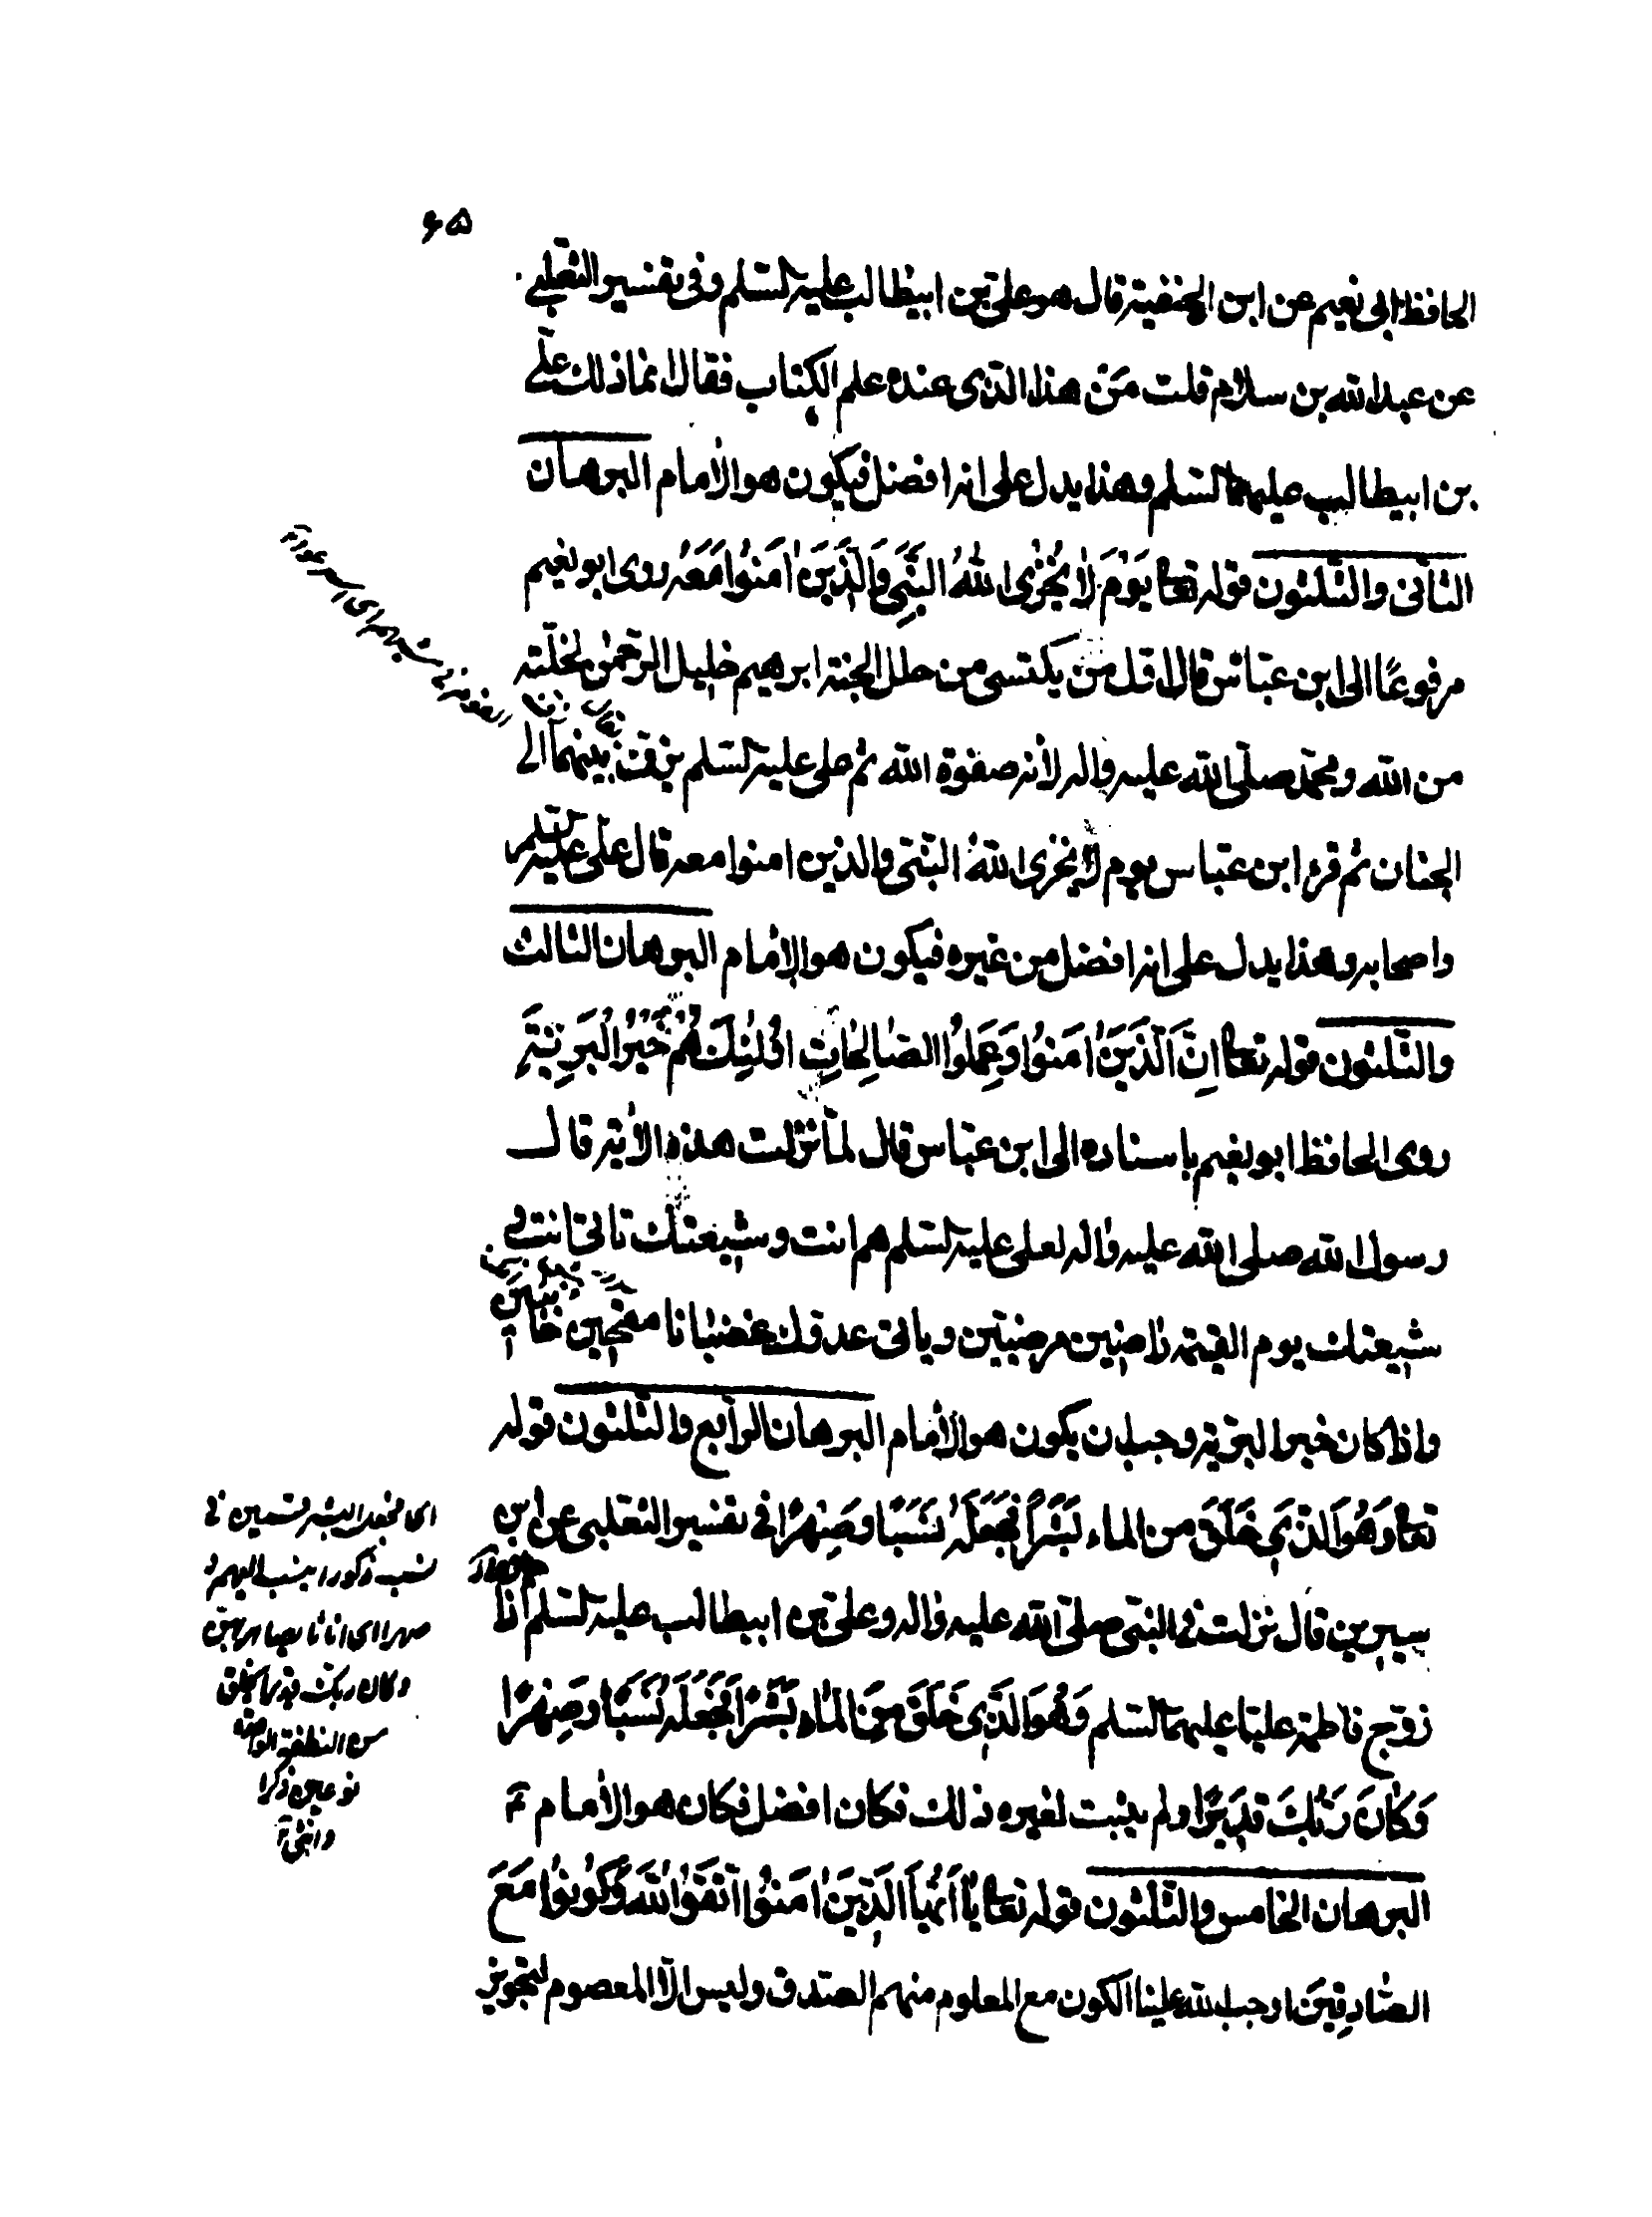 ۶۵
الحافظ ابی نعیم عن ابن الحنفیة قال هو علی بن ابیطالب علیه السلم وفی تفسیر الثعلبی
عن عبدالله بن سلام قلت مَنْ هذا الذی عنده علم الکتاب فقال انما ذلك علی
بن ابیطالب علیهما السلم وهذا یدل علی انه افضل فیکون هو الامام البرهان
الثانی والثلثون قوله تعا یَوْمَ لا یُخْزِی اللهُ النَّبِیَّ وَالَّذینَ اٰمَنُوا مَعَهُ روی ابو نعیم
مرفوعًا الی ابن عباس قال اول من یکتسی من حلل الجنة ابرهیم خلیل الرحمن لخلته
من الله ومحمد صلی الله علیه واله لانه صفوة الله ثم علی علیه السلم یزف بینهما الی
الجنان ثم قرء ابن عباس یوم لا یخزی الله النبی والذین امنوا معه قال علی علیه السلم
واصحابه وهذا یدل علی انه افضل من غیره فیکون هو الامام البرهان الثالث
والثلثون قوله تعا اِنَّ الَّذینَ اٰمَنُوا وَعَمِلُوا الصّالِحاتِ اُولٰئِكَ هُمْ خَیْرُ الْبَرِیَّةِ
روی الحافظ ابو نعیم باسناده الی ابن عباس قال لما نزلت هذه الایة قال
رسول الله صلی الله علیه واله لعلی علیه السلم هم انت وشیعتك تاتی انت و
شیعتك یوم القیمة راضین مرضیین ویاتی عدوك غضبانا مفحمین خائبین
واذا کان خیر البریة وجب ان یکون هو الامام البرهان الرابع والثلثون قوله
تعا وَهُوَ الَّذی خَلَقَ من الماء بَشَرًا فَجَعَلَهُ نَسَبًا وَصِهْرًا فی تفسیر الثعلبی عن ابن
سیرین قال نزلت فی النبی صلی الله علیه واله وعلی بن ابیطالب علیه السلم
زوّج فاطمة علیا علیهما السلم وَهُوَ الَّذی خَلَقَ مِنَ الْماءِ بَشَرًا فَجَعَلَهُ نَسَبًا وَصِهْرًا
وَکانَ رَبُّكَ قَدیرًا ولم یثبت لغیره ذلك فکان افضل فکان هو الامام
البرهان الخامس والثلثون قوله تعا یا اَیُّهَا الَّذینَ اٰمَنُوا اتَّقُوا اللهَ وَکُونُوا مَعَ
الصّادِقینَ اوجب الله علینا الکون مع المعلوم منهم الصدق ولیس الا المعصوم لتجویز
ای فجعل البشر قسمین ذی
نسب ذکورا ینسب الیهم و
صهرا ای اناثا یصاهر بهن
وکان ربك قدیرا یخلق
من النطفة الواحدة
نوعین ذکرا
وانثی